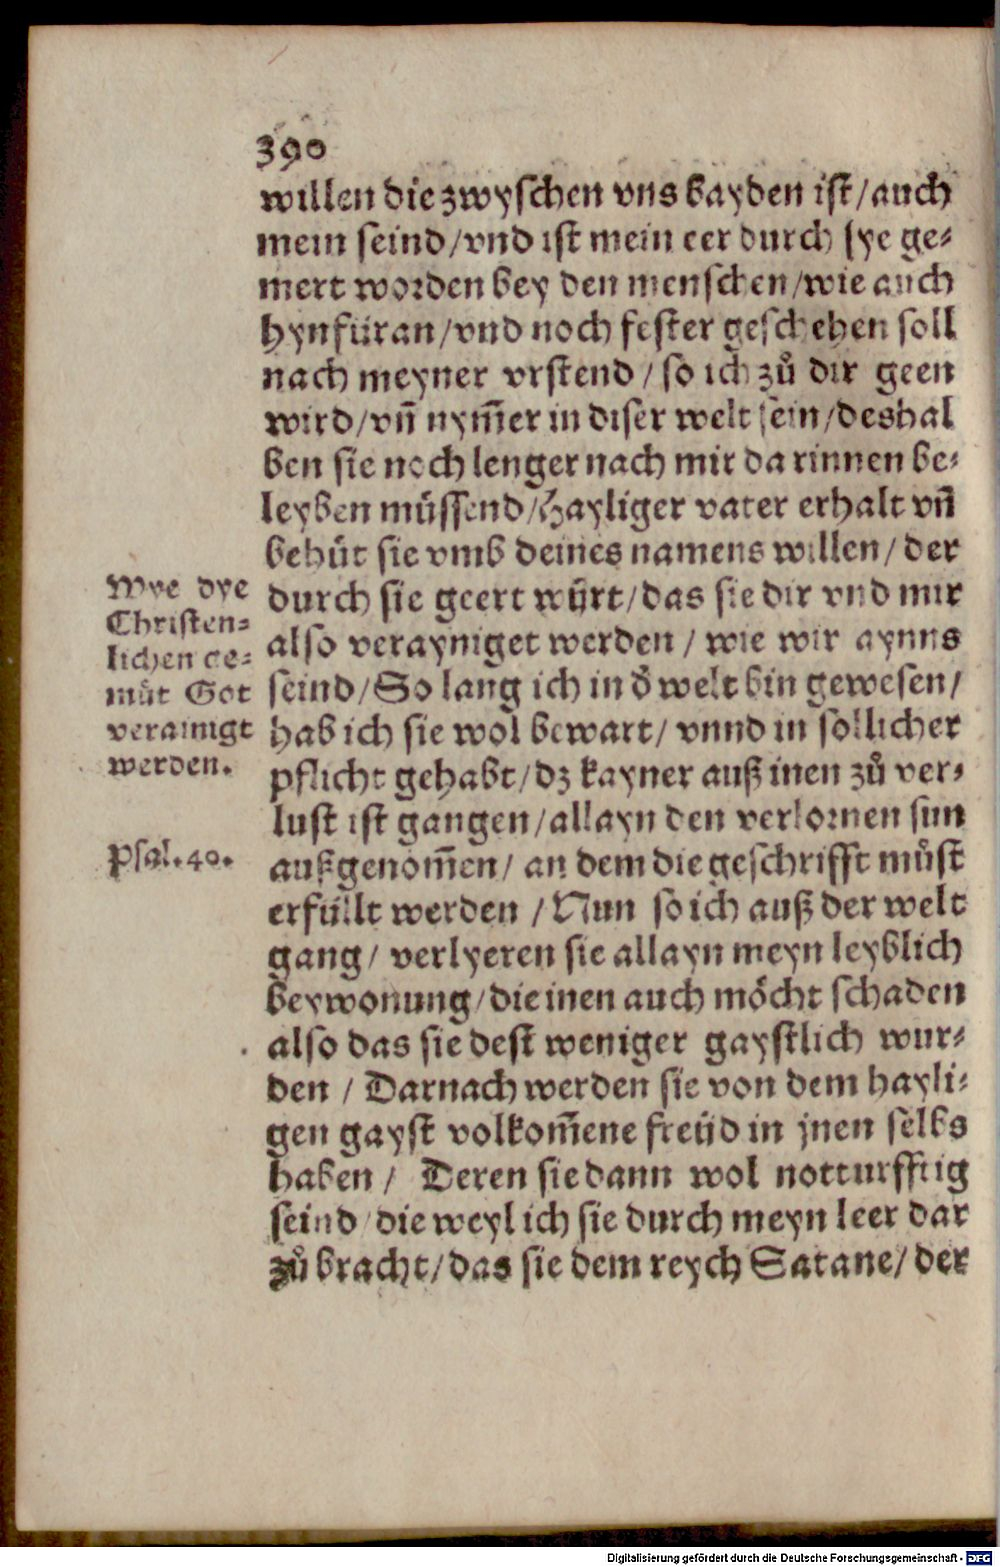 390
willen die zwyschen vns bayden ist/auch
mein seind/vnd ist mein eer durch sye ge⸗
mert worden bey den menschen/wie auch
hynfüran/vnd noch fester geschehen soll
nach meyner vrstend/so ich zů dir geen
wird/vn̄ nym̄er in diser welt sein/deshal
ben sie noch lenger nach mir darinnen be⸗
leyben müssend/Hayliger vater erhalt vn̄
behüt sie vmb deines namens willen/der
durch sie geert würt/das sie dir vnd mir
also verayniget werden/wie wir aynns
seind/So lang ich in d̓ welt bin gewesen/
hab ich sie wol bewart/vnnd in sollicher
pflicht gehabt/dz kayner auß inen zů ver⸗
lust ist gangen/allayn den verlornen sun
außgenom̄en/an dem die geschrifft müst
erfüllt werden/Nun so ich auß der welt
gang/verlyeren sie allayn meyn leyblich
beywonung/die inen auch möcht schaden
also das sie dest weniger gaystlich wur⸗
den/Darnach werden sie von dem hayli⸗
gen gayst volkom̄ene freüd in jnen selbs
haben/Deren sie dann wol notturfftig
seind/die weyl ich sie durch meyn leer dar
zů bracht/das sie dem reych Satane/der
Wye dye
Christen⸗
lichen ge⸗
müt Got
verainigt
werden.
Psal.40.
Digitalisierung gefördert durch die Deutsche Forschungsgemeinschaft - DFG